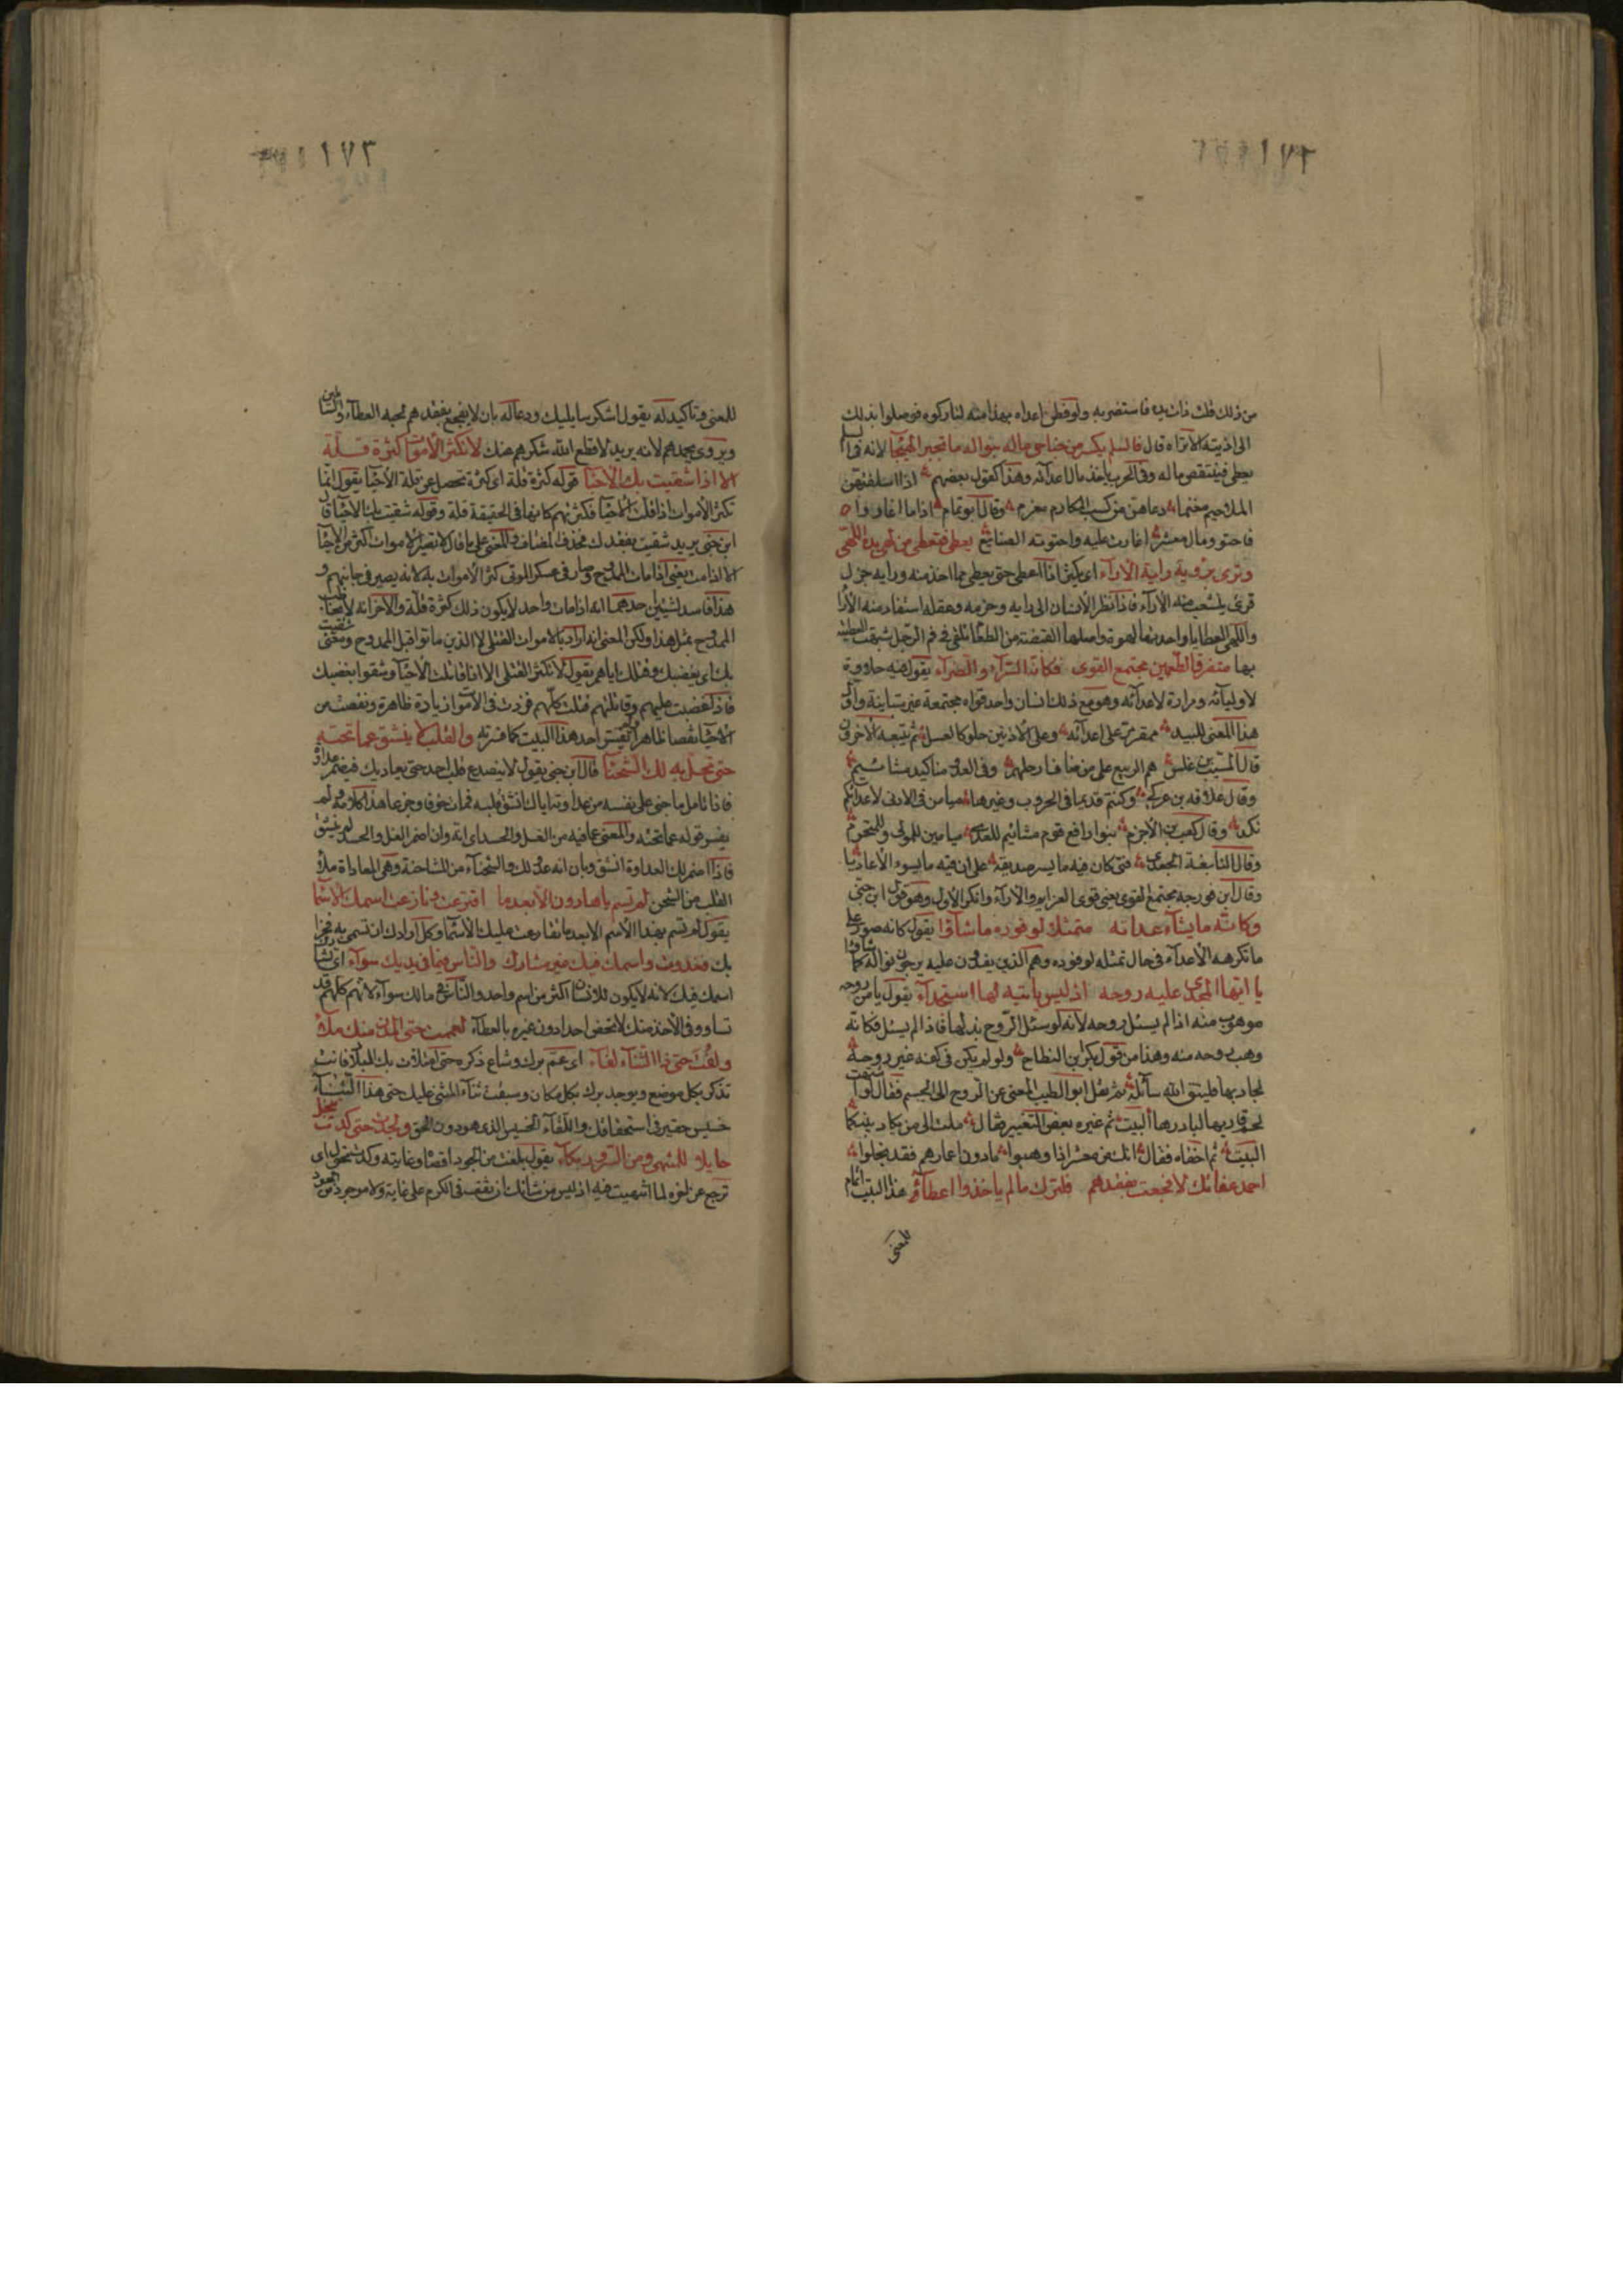 من ذلك فلت ذات يده فاستضربه ولو فطن اعداه بهذا منه لتاركوه فوصلوا بذلك
الى اذيته كالاتراه قال فالسلم يكسر من جناحي ماله بنواله ما تجبر الهيجا لانه في السلم
يعطى فينتقص ماله وفي الحرب ياخذ مال اعدآئه وهذا كقول بعضهم اذا اسلفتهن
الملاحم مغنما دعاهن من كسب المكارم مغرم وقال ابو تمام اذا ما اغاروا
فاحتووا مال معشر اغارت عليه واحتوته الصنائع يعطى فتعطى من لهى يده اللهى
وترى برؤية رايه الارآء اي يكثر اذا اعطى حتى يعطى مما اخذ منه ورايه جزل
قوى يتشعب منه الارآء فاذا نظر الانسان الى رايه وحزمه وعقله استفاد منه الارا
واللهى العطايا واحدتها لهوة واصلها القبضة من الطعام تلقى في فم الرحى شبهت العطية
بها متفرق الطعمين مجتمع القوى فكانه السرآء والضرآء يقول فيه حلاوة
لاوليآئه ومرارة لاعدآئه وهو مع ذلك انسان واحد قواه مجتمعة غير متباينة واول
هذا المعنى للبيد ممقر مر على اعدآئه وعلى الادنين حلو كالعسل ثم تتبعه الاخرون
قال المسيب بن علس هم الربيع على من ضاف ارحلهم وفي العدو مناكيد مشائيم
وقال علاقة بن عركى وكنتم قديما في الحروب وغيرها ميامن في الادنى لاعدائكم
نكد وقال كعب بن الاجزم بنو رافع قوم مشائيم للعدى ميامين للمولى وللمتحرم
وقال النابغة الجعدى فتى كان فيه ما يسر صديقه على ان فيه ما يسوء الاعاديا
وقال ابن فورجه مجتمع القوى يعني قوى العزايم والارآء وانكر الاول وهو قول ابن جنى
وكانه ما يشآء عداته متمثلا لوفوده ما شآؤا يقول كانه صور على
ما تكرهه الاعدآء في حال تمثله لوفوده وهم الذين يفدون عليه يرجون نواله كما شاؤا
يا ايها المجدى عليه روحه اذ ليس ياتيه لها استجدآء يقول يا من روحه
موهوب منه اذا لم يسئل روحه لانه لو سئل الروح بذلها فاذا لم يسئل فكانه
وهب روحه منه وهذا من قول بكر بن النطاح ولو لم يكن في كفه غير روحه
لجاد بها فليتق الله سآئله ثم نقل ابو الطيب المعنى عن الروح الى الجسم فقال لو اشتهت
لحم قاريها لبادرها البيت ثم غيره بعض التغيير فقال ملت الى من يكاد بينكما
البيت ثم اخفاه فقال انك من معشر اذا وهبوا ما دون اعمارهم فقد بخلوا
احمد عفاتك لا فجعت بفقدهم فلترك ما لم ياخذوا اعطآء هذا البيت اتمام
للمعنى
١٧٣
للمعنى وتاكيد له يقول اشكر سايليك ودعا له بان لا يفجع بفقدهم لحبه العطآء والسائلين
ويروى بحمدهم لانه يريد لا قطع الله شكرهم عنك لا تكثر الاموات كثرة قلة
الا اذا شقيت بك الاحيا قوله كثرة قلة اي كثرة تحصل عن قلة الاحيا يقول انما
تكثر الاموات اذا قلت الاحيا فكثرتهم كانها في الحقيقة قلة وقوله شقيت بك الاحيا قال
ابن جنى يريد شقيت بفقدك فحذف المضاف والمعنى على ما قال لا تصير الاموات اكثر من الاحيا
الا اذا مت يعني اذا مات الممدوح وصار في عسكر الموتى كثر الاموات به لانه يصير في جانبهم و
هذا فاسد لشيئين احدهما انه اذا مات واحد لا يكون ذلك كثرة قلة والاخر انه لا يخاطب
الممدوح بمثل هذا ولكن المعنى انه اراد بالاموات القتلى لا الذين ماتوا قبل الممدوح ومعنى شقيت
بك اي بغضبك وقتلك اياهم يقول لا تكثر القتلى الا اذا قاتلت الاحيآء وشقوا بغضبك
فاذا غضبت عليهم وقاتلتهم قتلت كلهم فزدت في الاموات زيادة ظاهرة ونقصت من
الاحيا نقصا ظاهرا ولم يفسر احد هذا البيت كما فسرته والقلب لا ينشق عما تحته
حتى تحل به لك الشحنا قال ابن جنى يقول لا ينصدع قلب احد حتى يعاديك فيضمر عداوة
فاذا تامل ما جنى على نفسه من عداوته اياك انشق قلبه فمات خوفا وجزعا هذا كلامه ولم
يفسر قوله عما تحته والمعنى عما فيه من الغل والحسد اي انه وان اضمر الغل والحسد لم ينشق
فاذا اضمر لك العداوة انشق وبان انه عدو لك والشحنآء من المشاحنة وهي المعاداة ملأ
القلب من الشحن لم تسم يا هارون الا بعد ما اقترعت ونازعت اسمك الاسما
يقول لم تسم بهذا الاسم الا بعد ما تقارعت عليك الاسما وكل اراد ان تسمى به فخرا
بك فغدوت واسمك فيك غير مشارك والناس فيما في يديك سوآء اي
اسمك فيك لانه لا يكون للانسان اكثر من اسم واحد والناس في مالك سوآء لانهم كلهم قد
تساووا في الاخذ منك لا تخص احدا دون غيره بالعطآء لعممت حتى المدن منك ملأ
ولفت حتى ذا الثنآء لفآء اي عم برك وشاع ذكره حتى امتلات بك البلاد فانت
تذكر بكل موضع ويوجد برك بكل مكان وسبقت ثنآء المثنى عليك حتى هذا الثنآء
خسيس حقير في استحقاقك واللفآء الخسيس الذي هو دون الحق ولجدت حتى كدت تبخل
حايلا للمنتهى ومن السرور بكآء يقول بلغت من الجود اقصاه وغايته وكدت تحول اي
ترجع عن لغوه لما انتهيت فيه اذ ليس من شانك ان تقف في الكرم على غاية ولا موجود من الجود